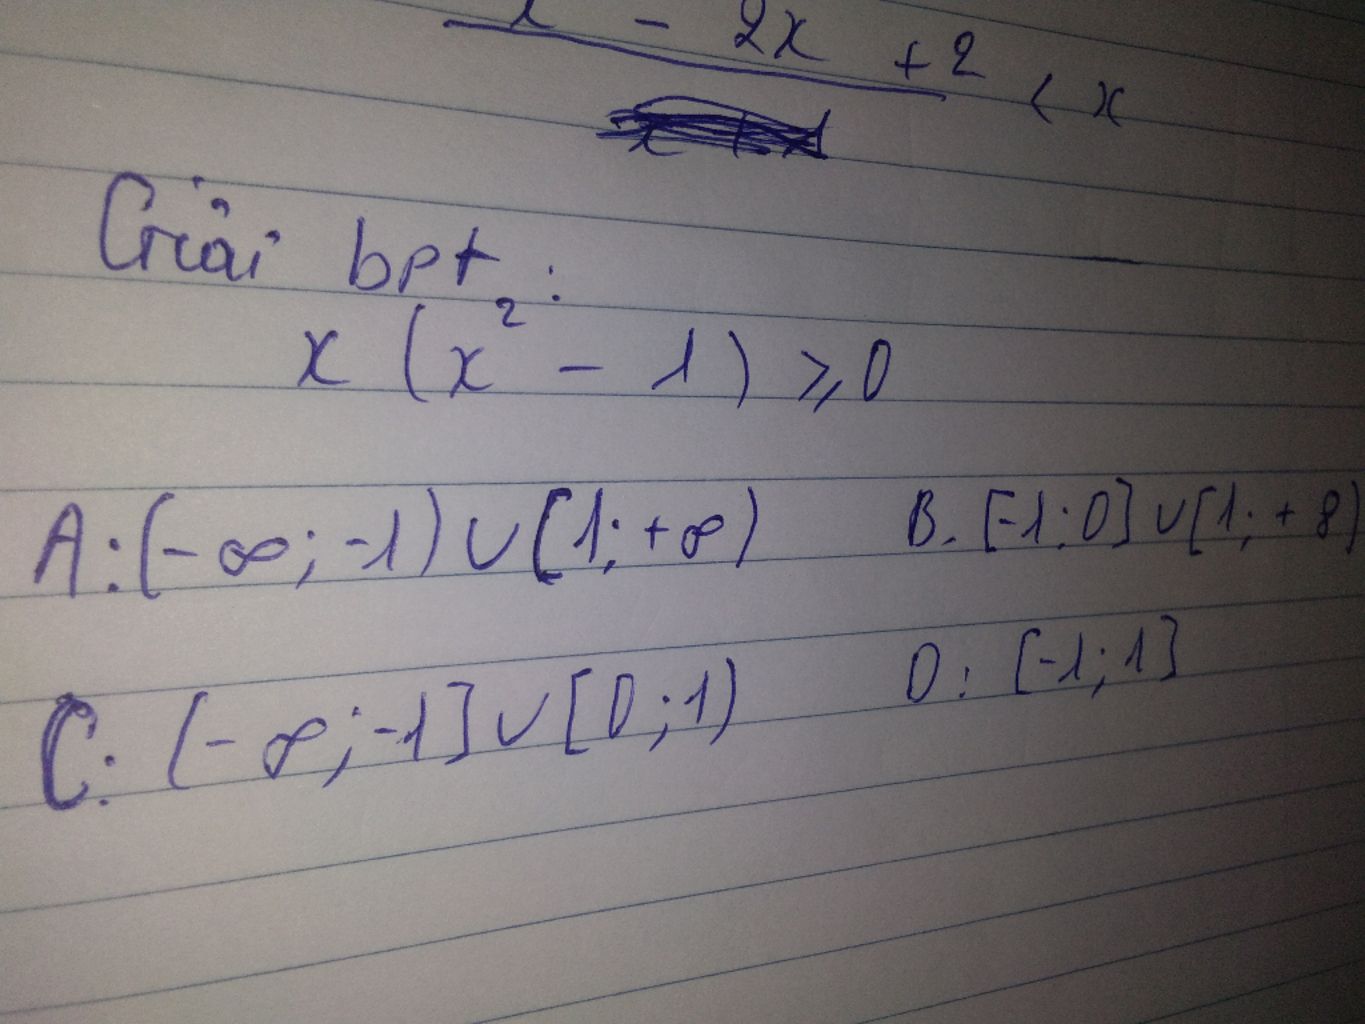 - 2x + 2 < x
Giải bpt :
x (x² - 1) ≥ 0
A: (-∞; -1) ∪ [1; +∞) B. [-1; 0] ∪ [1; +∞)
C: (-∞; -1] ∪ [0; 1) D: [-1; 1]